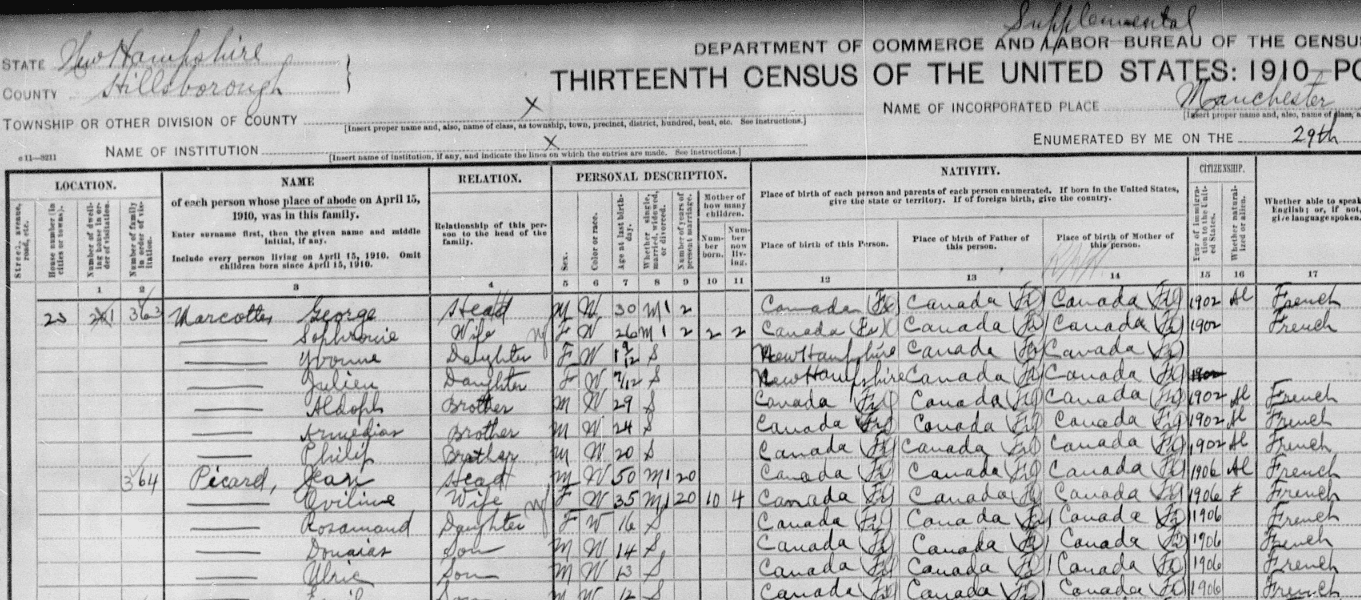 Supplemental
DEPARTMENT OF COMMERCE AND LABOR—BUREAU OF THE CENSUS
STATE New Hampshire
THIRTEENTH CENSUS OF THE UNITED STATES: 1910—PO
COUNTY Hillsborough
NAME OF INCORPORATED PLACE Manchester
TOWNSHIP OR OTHER DIVISION OF COUNTY X
[Insert proper name and, also, name of class, as township, town, precinct, district, hundred, beat, etc. See instructions.]
[Insert proper name and, also, name of class, a
ENUMERATED BY ME ON THE 29th
NAME OF INSTITUTION X
[Insert name of institution, if any, and indicate the lines on which the entries are made. See instructions.]
LOCATION.
Street, avenue, road, etc.
House number (in cities or towns).
Number of dwelling house in order of visitation.
Number of family in order of visitation.
NAME
of each person whose place of abode on April 15, 1910, was in this family.
Enter surname first, then the given name and middle initial, if any.
Include every person living on April 15, 1910. Omit children born since April 15, 1910.
RELATION.
Relationship of this person to the head of the family.
PERSONAL DESCRIPTION.
Sex.
Color or race.
Age at last birthday.
Whether single, married, widowed, or divorced.
Number of years of present marriage.
Mother of how many children.
Number born.
Number now living.
NATIVITY.
Place of birth of each person and parents of each person enumerated. If born in the United States, give the state or territory. If of foreign birth, give the country.
Place of birth of this Person.
Place of birth of Father of this person.
Place of birth of Mother of this person.
CITIZENSHIP.
Year of immigration to the United States.
Whether naturalized or alien.
Whether able to speak English; or, if not, give language spoken.
1 2 3 4 5 6 7 8 9 10 11 12 13 14 15 16 17
23 363 Marcotte, George Head M W 30 M1 2 Canada (Fr) Canada (Fr) Canada (Fr) 1902 Al French
Sophronie Wife F W 26 M1 2 2 2 Canada (Fr) Canada (Fr) Canada (Fr) 1902 French
Yvonne Daughter F W 1 9/12 S New Hampshire Canada (Fr) Canada (Fr)
Julien Daughter F W 7/12 S New Hampshire Canada (Fr) Canada (Fr) 1902
Aldoph Brother M W 29 S Canada (Fr) Canada (Fr) Canada (Fr) 1902 Al French
Armedias Brother M W 24 S Canada (Fr) Canada (Fr) Canada (Fr) 1902 Al French
Philip Brother M W 20 S Canada (Fr) Canada (Fr) Canada (Fr) 1902 Al French
364 Picard, Jean Head M W 50 M1 20 Canada (Fr) Canada (Fr) Canada (Fr) 1906 Al French
Wife F W 35 M1 20 10 4 Canada (Fr) Canada (Fr) Canada (Fr) 1906 French
Rosamond Daughter F W 16 S Canada (Fr) Canada (Fr) Canada (Fr) 1906 French
Son M W 14 S Canada (Fr) Canada (Fr) Canada (Fr) 1906 French
Ulric Son M W 13 S Canada (Fr) Canada (Fr) Canada (Fr) 1906 French
M W 12 S Canada (Fr) Canada (Fr) Canada (Fr) 1906 French